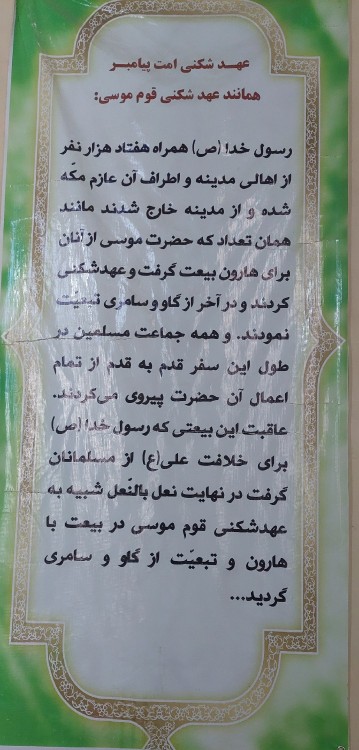 عهد شکنی امت پیامبر
همانند عهد شکنی قوم موسی:
رسول خدا (ص) همراه هفتاد هزار نفر
از اهالی مدینه و اطراف آن عازم مکّه
شده و از مدینه خارج شدند مانند
همان تعداد که حضرت موسی از آنان
برای هارون بیعت گرفت و عهدشکنی
کردند و در آخر از گاو و سامری تبعیّت
نمودند. و همه جماعت مسلمین در
طول این سفر قدم به قدم از تمام
اعمال آن حضرت پیروی می‌کردند.
عاقبت این بیعتی که رسول خدا (ص)
برای خلافت علی(ع) از مسلمانان
گرفت در نهایت نعل بالنّعل شبیه به
عهدشکنی قوم موسی در بیعت با
هارون و تبعیّت از گاو و سامری
گردید...